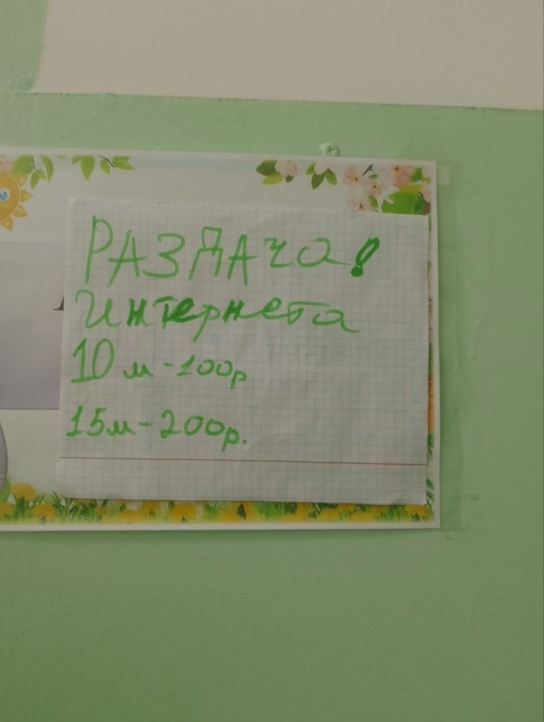 РАЗДАЧА!
интернета
10м-100р
15м-200р.